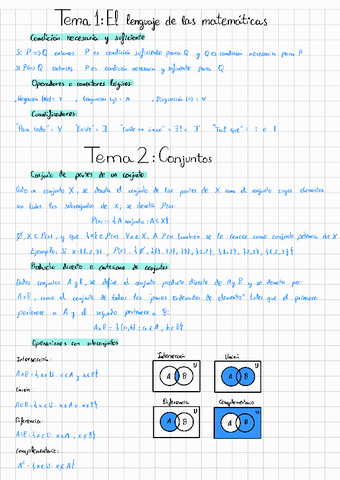 Tema 1: El lenguaje de las matemáticas
Condición necesaria y suficiente
Si P => Q entonces P es condición suficiente para Q y Q es condición necesaria para P
Si P <=> Q entonces P es condición necesaria y suficiente para Q
Operadores o conectores lógicos:
Cuantificadores:
"Para todo" = ∀ "Existe" = ∃ "Existe un único" = ∃! "Tal que" = : o |
Tema 2: Conjuntos
Conjunto de partes de un conjunto
Dado un conjunto X, se denota el conjunto de las partes de X como el conjunto cuyos elementos
son todos los subconjuntos de X, se denota P(X)
P(X) = { A conjunto : A ⊆ X }
Ejemplo: Si X = {1,2,3}, P(X) = { ∅, {1}, {2}, {3}, {1,2}, {1,3}, {2,3}, {1,2,3} }
Producto directo o cartesiano de conjuntos
Dados conjuntos A y B, se define el conjunto producto directo de A y B y se denota por
A×B, como el conjunto de todos los "pares ordenados de elementos" tales que el primero
pertenece a A y el segundo pertenece a B:
A×B = { (a,b) : a ∈ A, b ∈ B }
Operaciones con subconjuntos
Intersección:
A∩B = { x ∈ U : x ∈ A y x ∈ B }
Unión:
Diferencia:
Complementario:
Intersección Unión
A B U A B U
Diferencia Complementario
A B U A B U